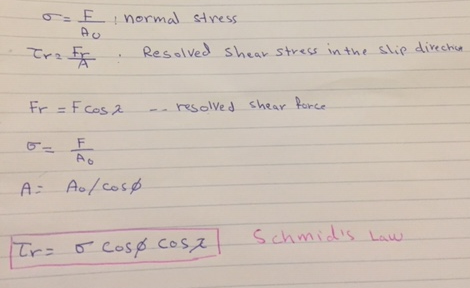 σ = F/A₀ ; normal stress
τr = Fr/A . Resolved Shear stress in the slip direction
Fr = F cos λ -- resolved shear force
σ = F/A₀
A = A₀/cosϕ
τr = σ cosϕ cos λ Schmid's Law